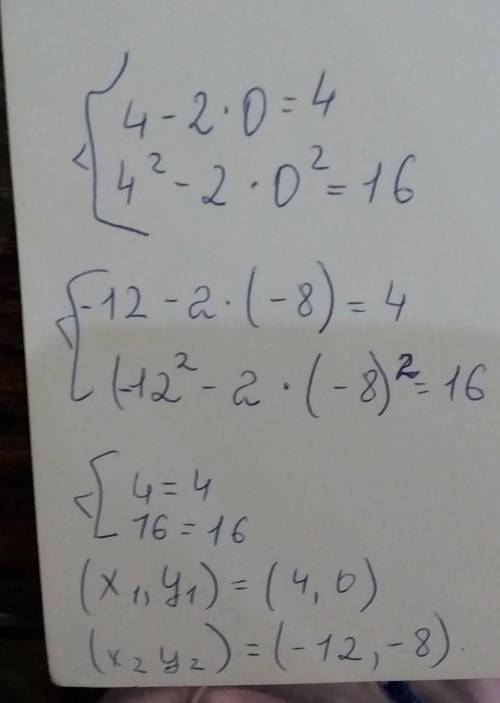 { 4 - 2 · 0 = 4
4² - 2 · 0² = 16
{ -12 - 2 · (-8) = 4
(-12² - 2 · (-8)² = 16
{ 4 = 4
16 = 16
(x₁, y₁) = (4, 0)
(x₂ y₂) = (-12, -8).